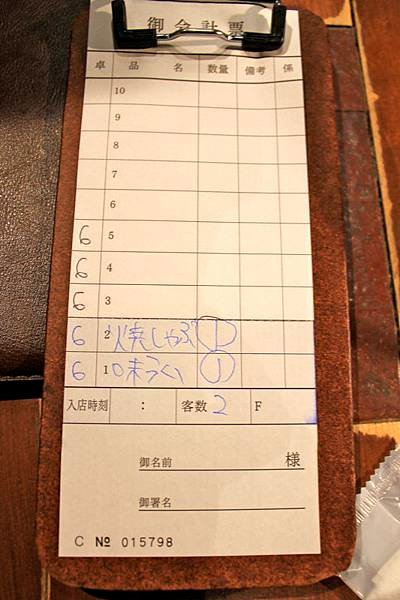 御会計票
卓 品 名 数量 備考 係
10
9
8
7
6
6 5
6 4
6 3
6 2 焼しゃぶ ①
6 1 ①
入店時刻 : 客数 2 F
御名前 様
御署名
C № 015798